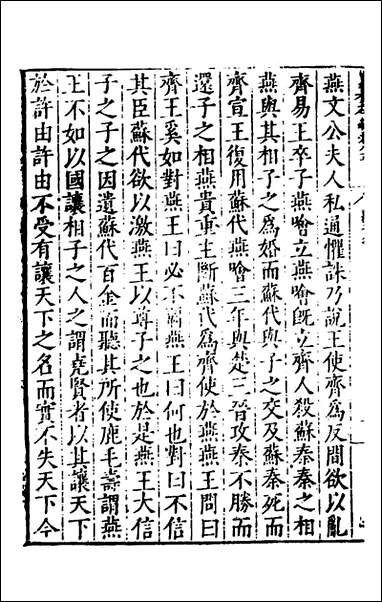 燕文公夫人私通懼誅乃說王使齊爲反間欲以亂
齊易王卒子燕噲立燕噲旣立齊人殺蘇秦秦之相
燕與其相子之爲婚而蘇代與子之交及蘇秦死而
齊宣王復用蘇代燕噲三年與楚三晉攻秦不勝而
還子之相燕貴重主斷蘇代爲齊使於燕燕王問曰
齊王奚如對燕王曰必不霸燕王曰何也對曰不信
其臣蘇代欲以激燕王以尊子之也於是燕王大信
子之子之因遺蘇代百金而聽其所使鹿毛壽謂燕
王不如以國讓相子之人之謂堯賢者以其讓天下
於許由許由不受有讓天下之名而實不失天下今